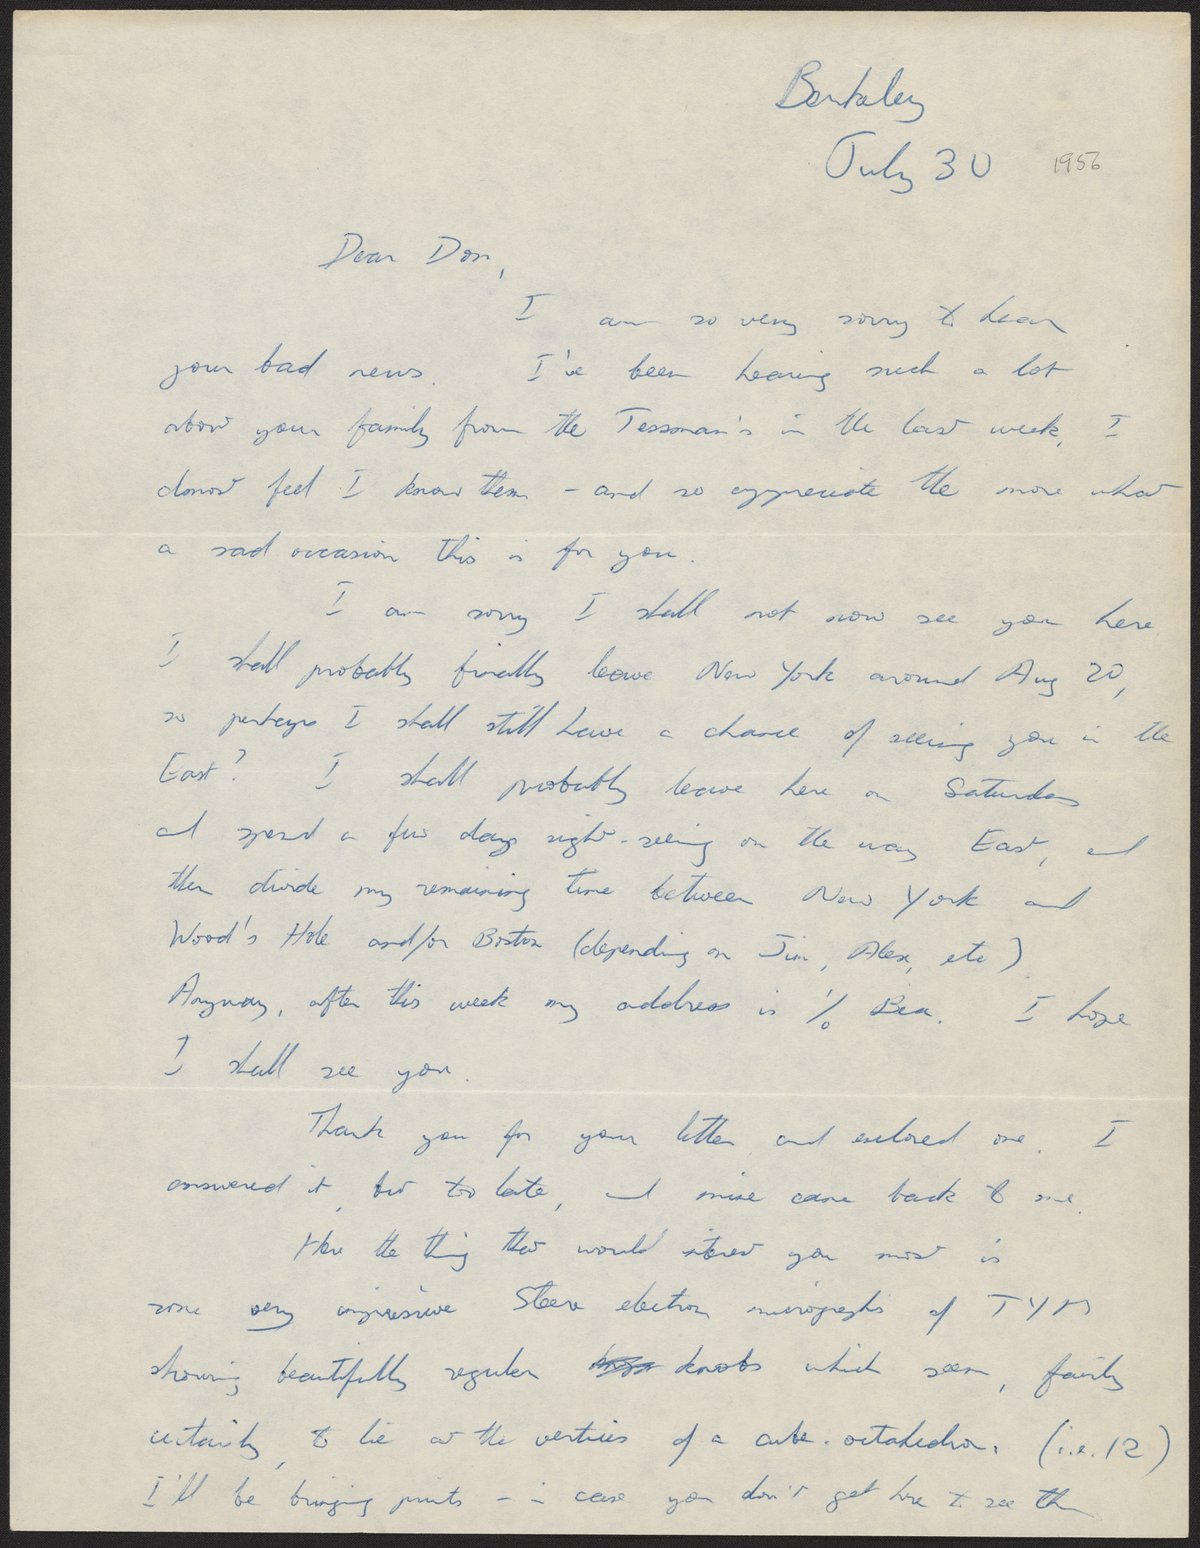 Berkeley
July 30 1956
Dear Don,
I am so very sorry to hear
your bad news. I've been hearing such a lot
about your family from the Tessman's in the last week, I
almost feel I know them - and so appreciate the more what
a sad occasion this is for you.
I am sorry I shall not now see you here
I shall probably finally leave New York around Aug 20,
so perhaps I shall still have a chance of seeing you in the
East? I shall probably leave here on Saturday
and spend a few days sight-seeing on the way East, and
then divide my remaining time between New York and
Wood's Hole and/or Boston (depending on Jim, Alex, etc)
Anyway, after this week my address is % Bea. I hope
I shall see you.
Thank you for your letter and enclosed one. I
answered it, but too late, and mine came back to me.
Here the thing that would interest you most is
some very impressive Steere electron micrographs of TYM
showing beautifully regular knobs which seem, fairly
certainly, to lie at the vertices of a cube-octahedron. (i.e. 12)
I'll be bringing prints - in case you don't get here to see th